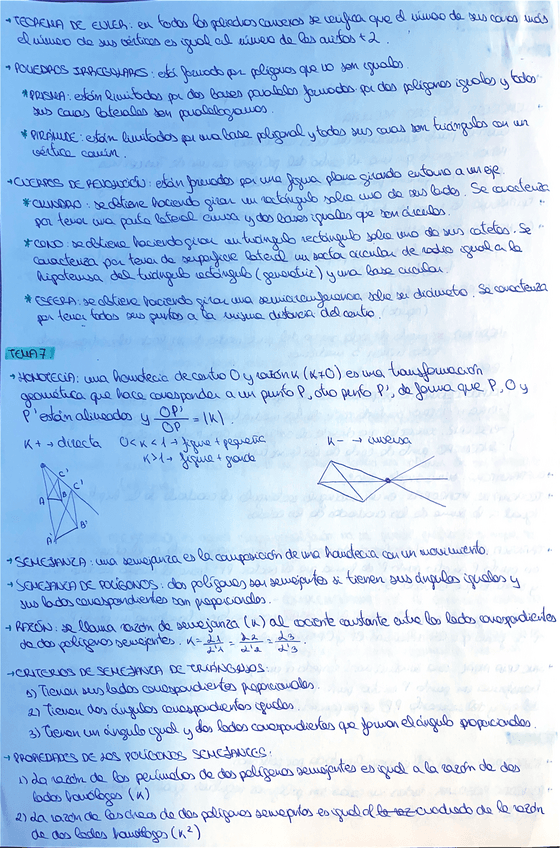 → TEOREMA DE EULER: en todos los poliedros convexos se verifica que el número de sus caras más
el número de sus vértices es igual al número de las aristas + 2.
→ POLIEDROS IRREGULARES: está formado por polígonos que no son iguales.
* PRISMA: están limitados por dos bases paralelas formados por dos polígonos iguales y todas
sus caras laterales son paralelogramos.
* PIRÁMIDE: están limitados por una base poligonal y todas sus caras son triángulos con un
vértice común.
→ CUERPOS DE REVOLUCIÓN: están formados por una figura plana girando entorno a un eje.
* CILINDRO: se obtiene haciendo girar un rectángulo sobre uno de sus lados. Se caracteriza
por tener una parte lateral curva y dos bases iguales que son círculos.
* CONO: se obtiene haciendo girar un triángulo rectángulo sobre uno de sus catetos. Se
caracteriza por tener de superficie lateral un sector circular de radio igual a la
hipotenusa del triángulo rectángulo (generatriz) y una base circular.
* ESFERA: se obtiene haciendo girar una semicircunferencia sobre su diámetro. Se caracteriza
por tener todos sus puntos a la misma distancia del centro.
TEMA 7
→ HOMOTECIA: una homotecia de centro O y razón K (K≠0) es una transformación
geométrica que hace corresponder a un punto P, otro punto P', de forma que P, O y
P' están alineados y OP'/OP = |K|.
K + → directa 0<K<1 → figura + pequeña K - → inversa
K>1 → figura + grande
C' C'
A B
B'
A'
→ SEMEJANZA: una semejanza es la composición de una homotecia con un movimiento.
→ SEMEJANZA DE POLÍGONOS: dos polígonos son semejantes si tienen sus ángulos iguales y
sus lados correspondientes son proporcionales.
→ RAZÓN: se llama razón de semejanza (K) al cociente constante entre los lados correspondientes
de dos polígonos semejantes. K = L1/L'1 = L2/L'2 = L3/L'3.
→ CRITERIOS DE SEMEJANZA DE TRIÁNGULOS:
1) Tienen sus lados correspondientes proporcionales.
2) Tienen dos ángulos correspondientes iguales.
3) Tienen un ángulo igual y dos lados correspondientes que forman el ángulo proporcionales.
→ PROPIEDADES DE LOS POLÍGONOS SEMEJANTES:
1) La razón de los perímetros de dos polígonos semejantes es igual a la razón de dos
lados homólogos (K)
2) La razón de las áreas de dos polígonos semejantes es igual al cuadrado de la razón
de dos lados homólogos (K²)